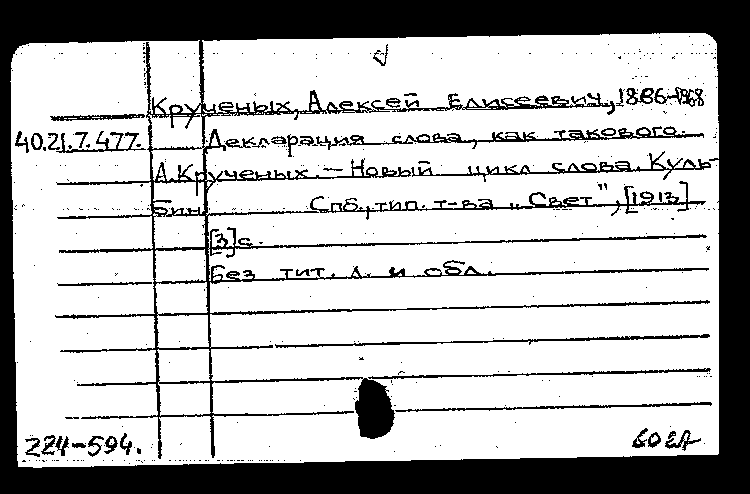 Крученых, Алексей Елисеевич, 1886-1968
40.21.7.477. Декларация слова, как такового.
А. Крученых. – Новый цикл слова. Куль-
бин. Спб., тип. т-ва „Свет", [1913]
[3]с.
Без тит. л. и обл.
224-594.